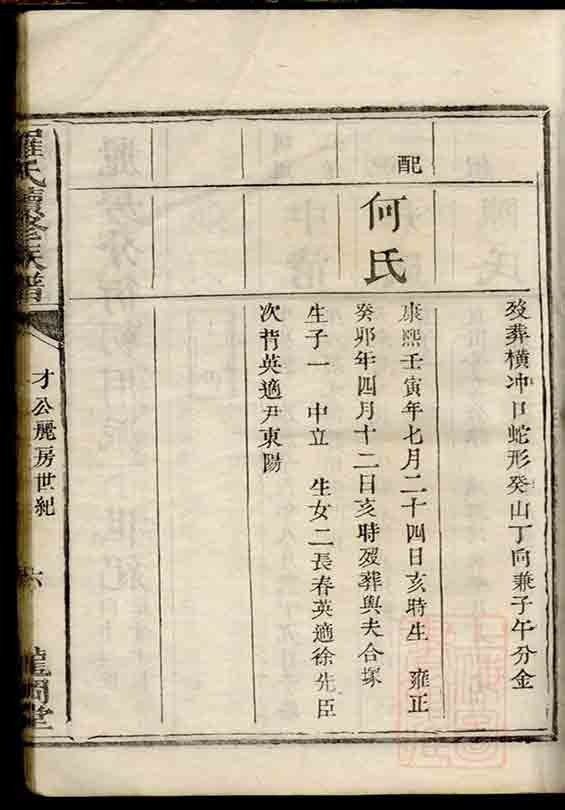 歿葬橫冲口蛇形癸山丁向兼子午分金
配
何氏
康熙壬寅年七月二十四日亥時生 雍正
癸卯年四月十二日亥時歿葬與夫合塚
生子一 中立 生女二長春英適徐先臣
次背英適尹東陽
羅氏續修族譜
才公麗房世紀
六